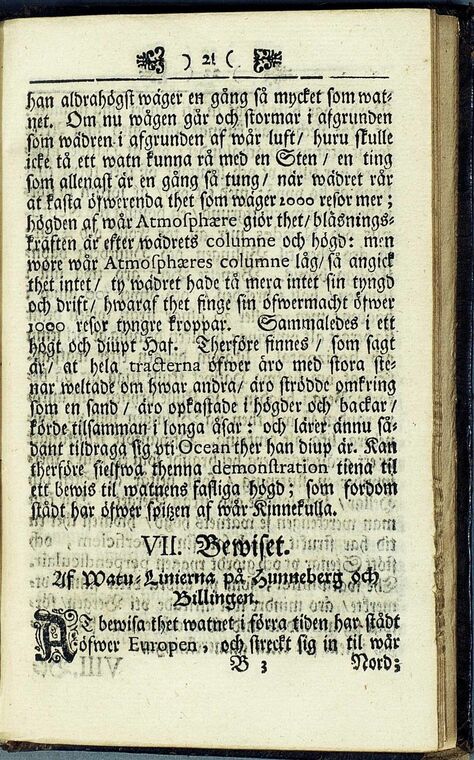 ) 21 (
han aldrahögst wäger en gång så mycket som wat-
net. Om nu wågen går och stormar i afgrunden
som wädren i afgrunden af wår luft/ huru skulle
icke tå ett watn kunna rå med en Sten / en ting
som allenast är en gång så tung/ når wädret rår
åt kasta öfwerenda thet som wäger 2000 resor mer;
högden af wår Atmosphære giör thet/ blåsnings-
kräften är efter wädrets columne och högd: men
wore wår Atmosphæres columne låg/ så angick
thet intet/ ty wädret hade tå mera intet sin tyngd
och drift/ hwaraf thet finge sin öfwermacht öfwer
1000 resor tyngre kroppar. Sammaledes i ett
högt och diupt Haf. Therföre finnes / som sagt
är/ at hela tracterna öfwer äro med stora ste-
nar weltade om hwar andra/ äro strödde omkring
som en sand / äro opkastade i högder och backar/
körde tillsamman i longa åsar: och lärer ännu så-
dant tildraga sig vti Ocean ther han diup är. Kan
therföre sielfwa thenna demonstration tiena til
ett bewis til watnens fasliga högd; som fordom
städt har öfwer spitzen af wår Kinnekulla.
VII. Bewiset.
Af Watu-Linierna på Hunneberg och
Billingen.
AT bewisa thet watnet i förra tiden har städt
öfwer Europen, och streckt sig in til wår
B 3 Nord;